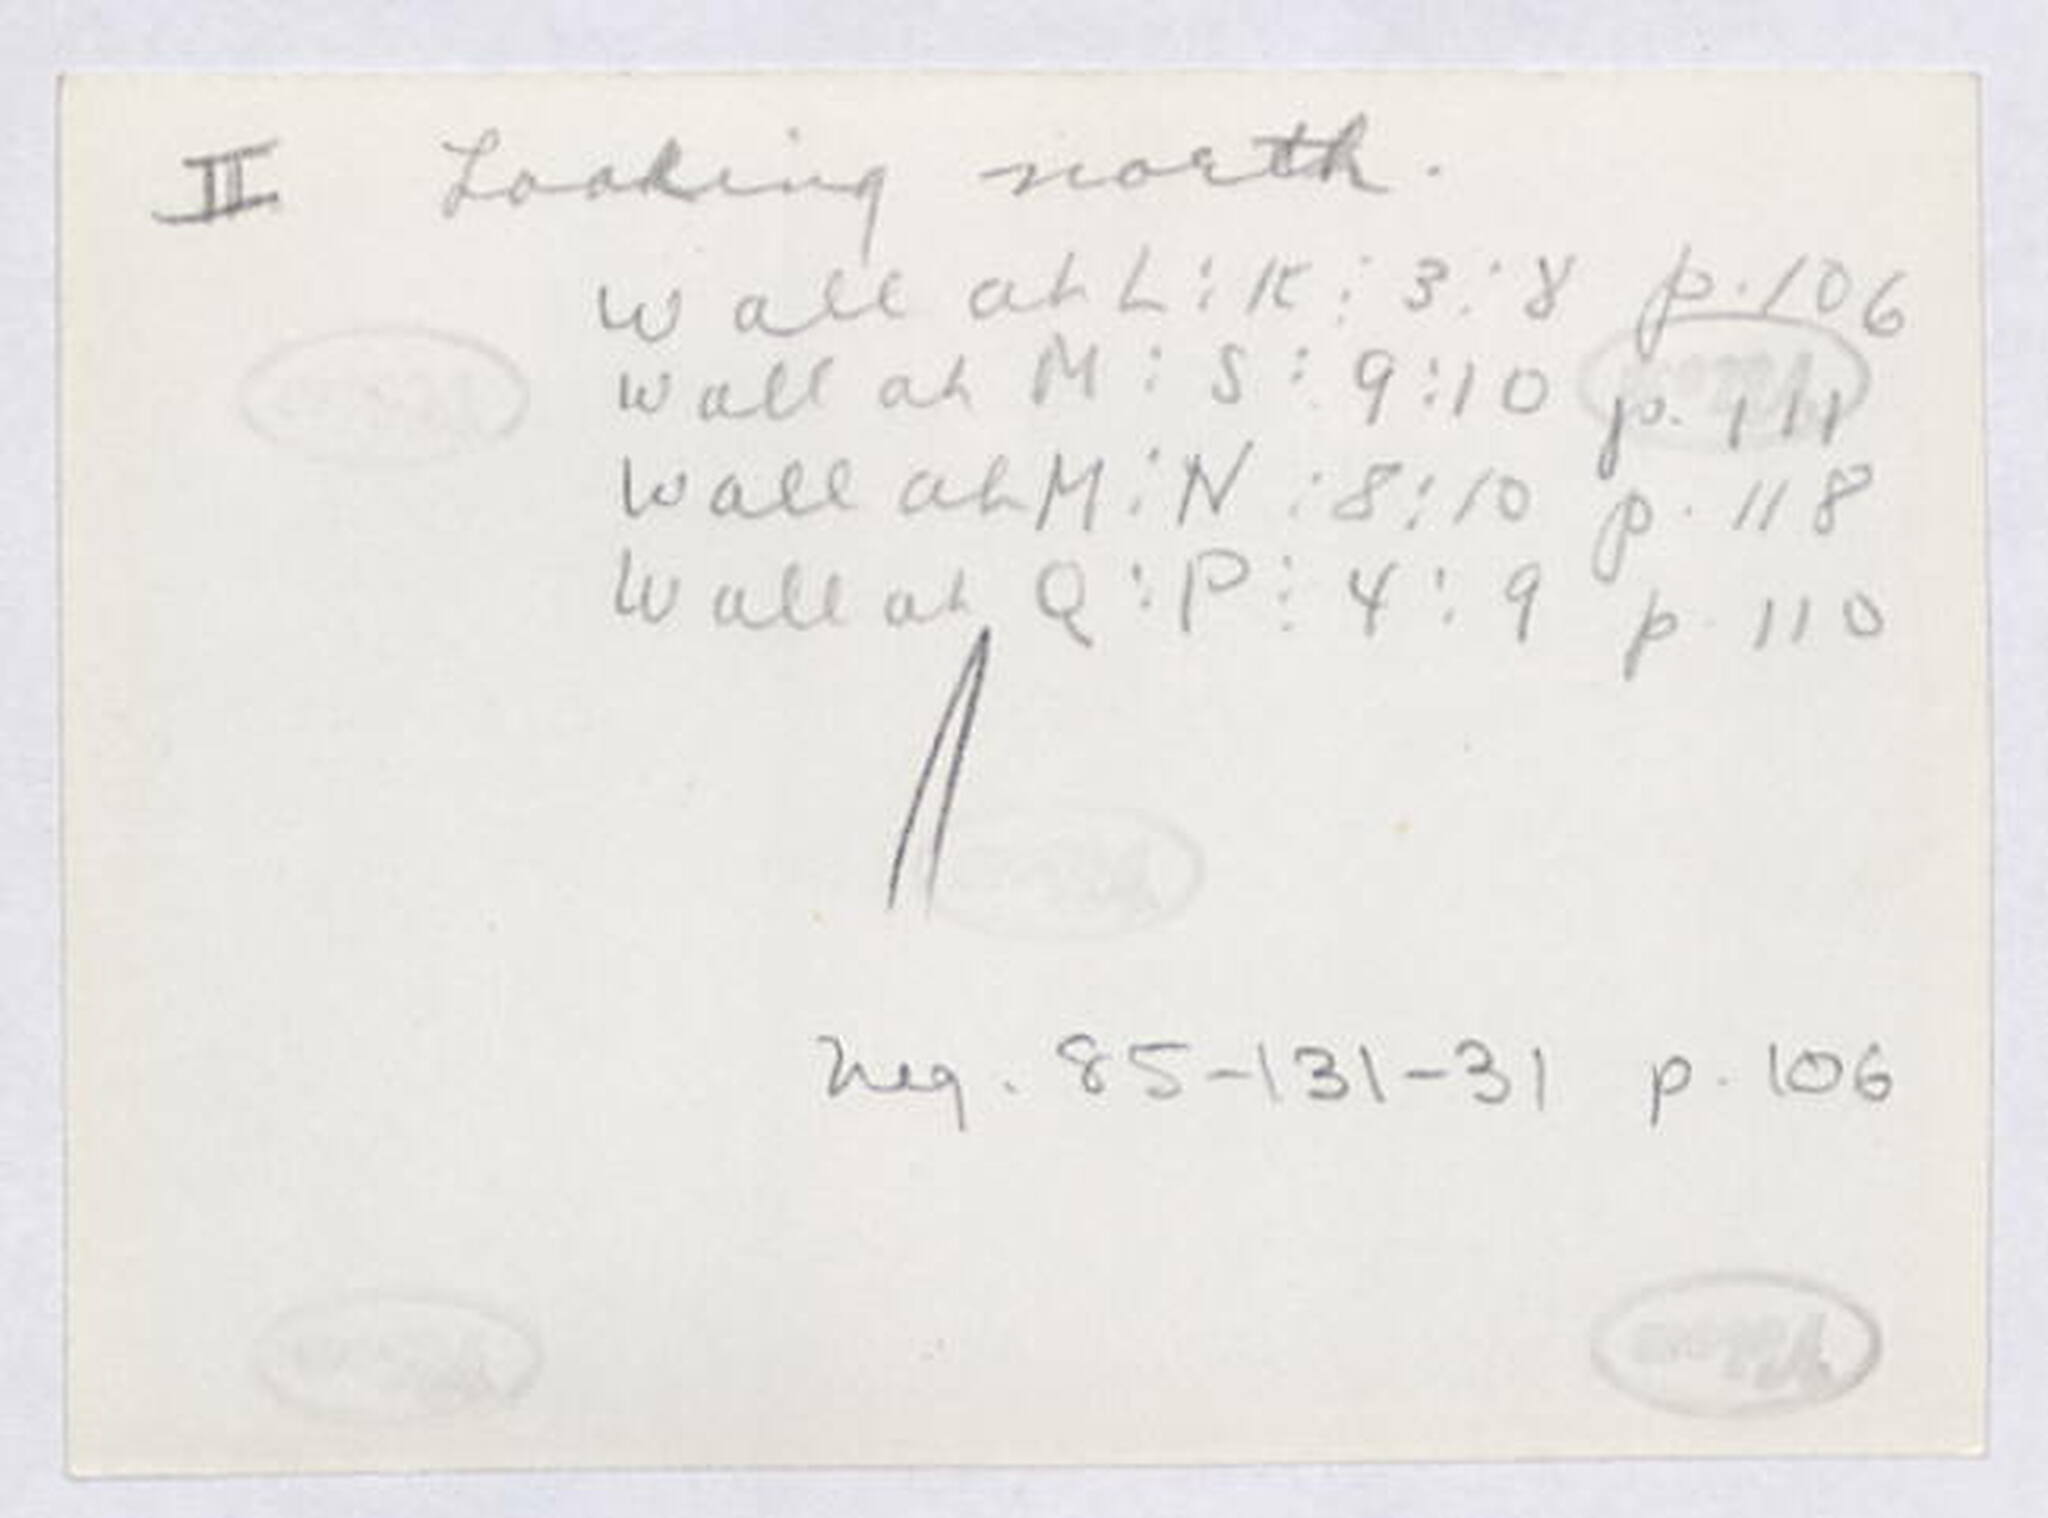 II Looking north.
Wall at L:K:3:8 p.106
Wall at M:S:9:10 p.111
Wall at M:N:8:10 p.118
Wall at Q:P:4:9 p.110
Neg. 85-131-31 p.106
Velox